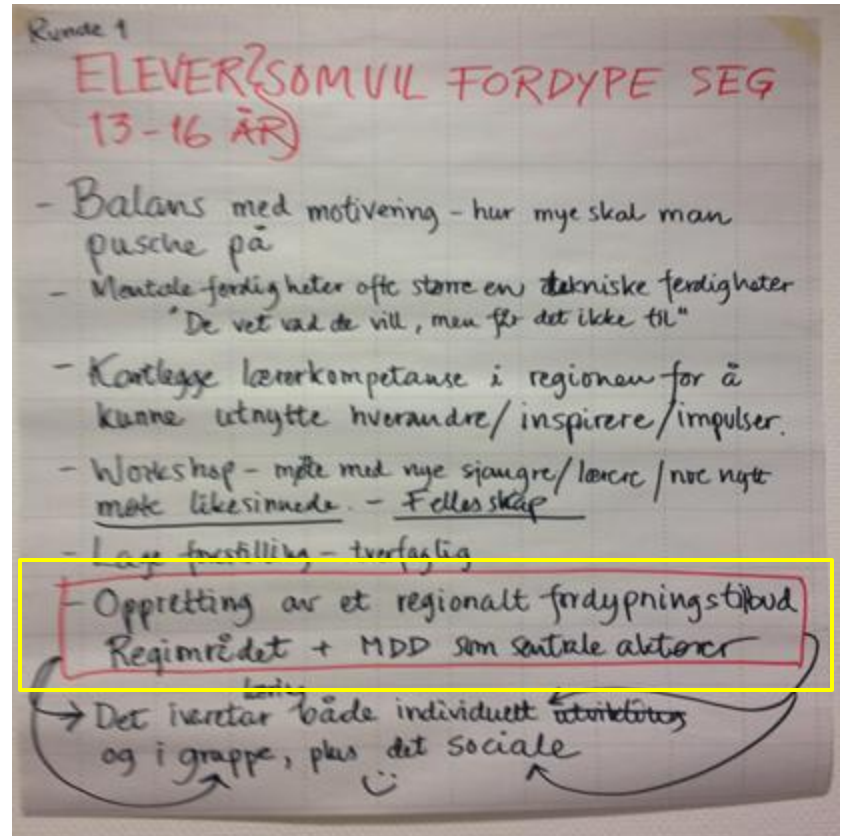 Runde 1
ELEVER? SOM VIL FORDYPE SEG
13-16 ÅR)
- Balans med motivering - hur mye skal man
pusche på
- Mentale ferdigheter ofte større en tekniske ferdigheter
"De vet vad de vill, men får det ikke til"
- Kartlegge lærerkompetanse i regionen for å
kunne utnytte hverandre/inspirere/impulser.
- Workshop - møte med nye sjangre/lærere/noe nytt
møte likesinnede. - Fellesskap
- Lage forestilling - tverfaglig
- Oppretting av et regionalt fordypningstilbud
+ MDD som sentrale aktører
Det ivretar både individuell
og i gruppe, plus det sociale